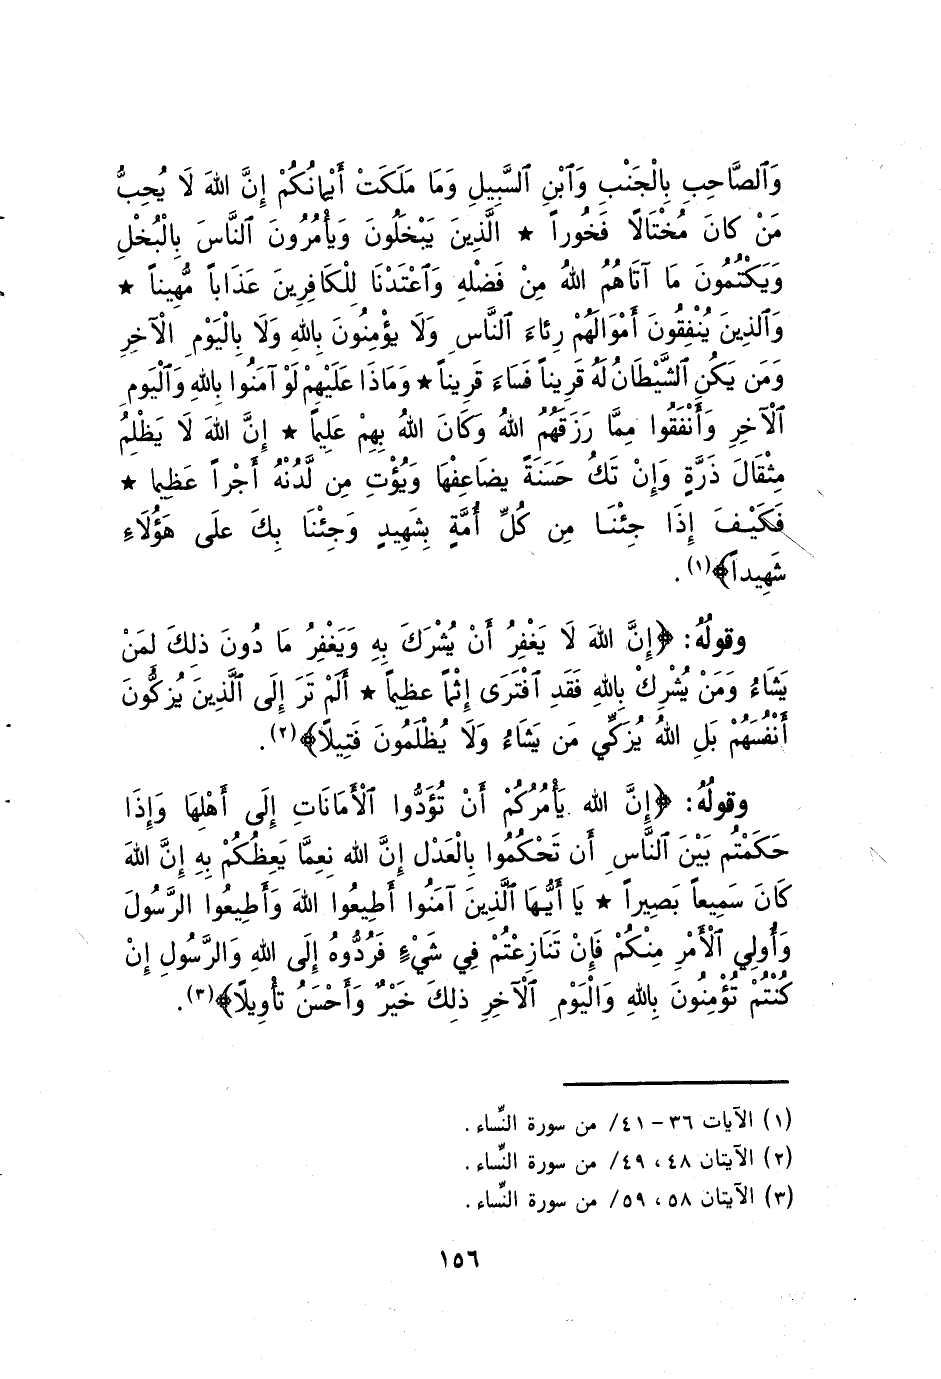 وَٱلصَّاحِبِ بِالْجَنْبِ وَٱبْنِ ٱلسَّبِيلِ وَمَا مَلَكَتْ أَيْمانُكُمْ إِنَّ اللهَ لَا يُحِبُّ
مَنْ كانَ مُخْتَالًا فَخُوراً ★ الَّذِينَ يَبْخَلُونَ وَيأْمُرُونَ ٱلنَّاسَ بِالْبُخْلِ
وَيَكْتُمُونَ مَا آتَاهُمُ اللهُ مِنْ فَضْلِهِ وَٱعْتَدْنَا لِلْكَافِرِينَ عَذَاباً مُّهِيناً ★
وَٱلَّذِينَ يُنْفِقُونَ أَمْوَالَهُمْ رِئاءَ ٱلنَّاسِ وَلَا يؤْمِنُونَ بِاللهِ وَلَا بِالْيَوْمِ الْآخِرِ
وَمَن يَكُنِ ٱلشَّيْطَانُ لَهُ قَرِيناً فَسَاءَ قَرِيناً ★ وَمَاذَا عَلَيْهِمْ لَوْ آمَنُوا بِاللهِ وَٱلْيَومِ
ٱلْآخِرِ وَأَنْفَقُوا مِمَّا رَزَقَهُمُ اللهُ وَكَانَ اللهُ بِهِمْ عَلِيماً ★ إِنَّ اللهَ لَا يَظْلِمُ
مِثْقَالَ ذَرَّةٍ وَإِنْ تَكُ حَسَنَةً يضَاعِفْهَا وَيُؤْتِ مِن لَّدُنْهُ أَجْراً عَظِيما ★
فَكَيْـفَ إِذَا جِئْنَـا مِن كُلِّ أُمَّةٍ بِشَهِيدٍ وَجِئْنَا بِكَ علَى هَؤُلَاءِ
شَهِيداً﴾(١).
وقولُهُ: ﴿إِنَّ اللهَ لَا يَغْفِرُ أَنْ يُشْرَكَ بِهِ وَيَغْفِرُ مَا دُونَ ذلِكَ لِمَنْ
يَشَاءُ وَمَنْ يُشْرِكْ بِاللهِ فَقَدِ ٱفْتَرَى إِثْماً عظِيماً ★ أَلَمْ تَرَ إِلَى ٱلَّذِينَ يُزَكُّونَ
أَنْفُسَهُمْ بَلِ اللهُ يُزَكِّي مَن يَشَاءُ وَلَا يُظْلَمُونَ فَتِيلًا﴾(٢).
وقولُهُ: ﴿إِنَّ الله يَأْمُرُكُمْ أَنْ تُؤَدُّوا ٱلْأَمَانَاتِ إِلَى أَهْلِهَا وَإِذَا
حَكَمْتُم بَيْنَ ٱلنَّاسِ أَن تَحْكُمُوا بِالْعَدْلِ إِنَّ الله نِعِمَّا يَعِظُكُمْ بِهِ إِنَّ اللهَ
كَانَ سَمِيعاً بَصِيراً ★ يَا أَيُّـهَا ٱلَّذِينَ آمَنُوا أَطِيعُوا اللهَ وَأَطِيعُوا الرَّسُولَ
وَأُولِي ٱلْأَمْرِ مِنْكُمْ فَإِنْ تَنَازَعْتُمْ فِي شَيْءٍ فَرُدُّوهُ إِلَى اللهِ وَالرَّسُولِ إِنْ
كُنْتُمْ تُؤْمِنُونَ بِاللهِ وَالْيَوْمِ ٱلْآخِرِ ذلِكَ خَيْرٌ وَأَحْسَنُ تأْوِيلًا﴾(٣).
(١) الآيات ٣٦ – ٤١/ من سورة النِّساء.
(٢) الآيتان ٤٨، ٤٩/ من سورة النِّساء.
(٣) الآيتان ٥٨، ٥٩/ من سورة النِّساء.
١٥٦